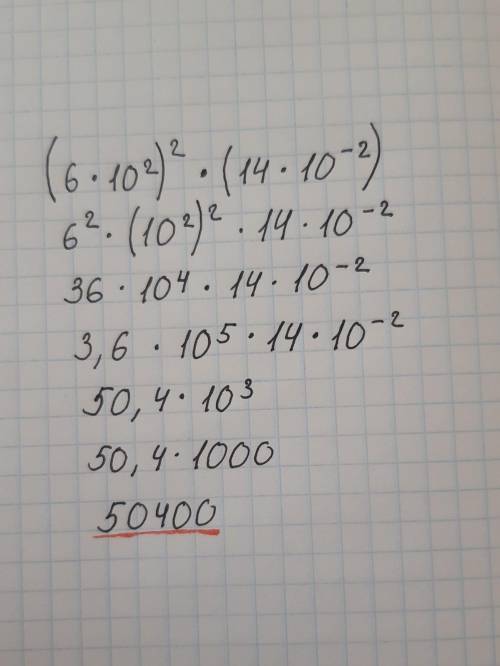 (6 · 10²)² · (14 · 10⁻²)
6² · (10²)² · 14 · 10⁻²
36 · 10⁴ · 14 · 10⁻²
3,6 · 10⁵ · 14 · 10⁻²
50,4 · 10³
50,4 · 1000
50400